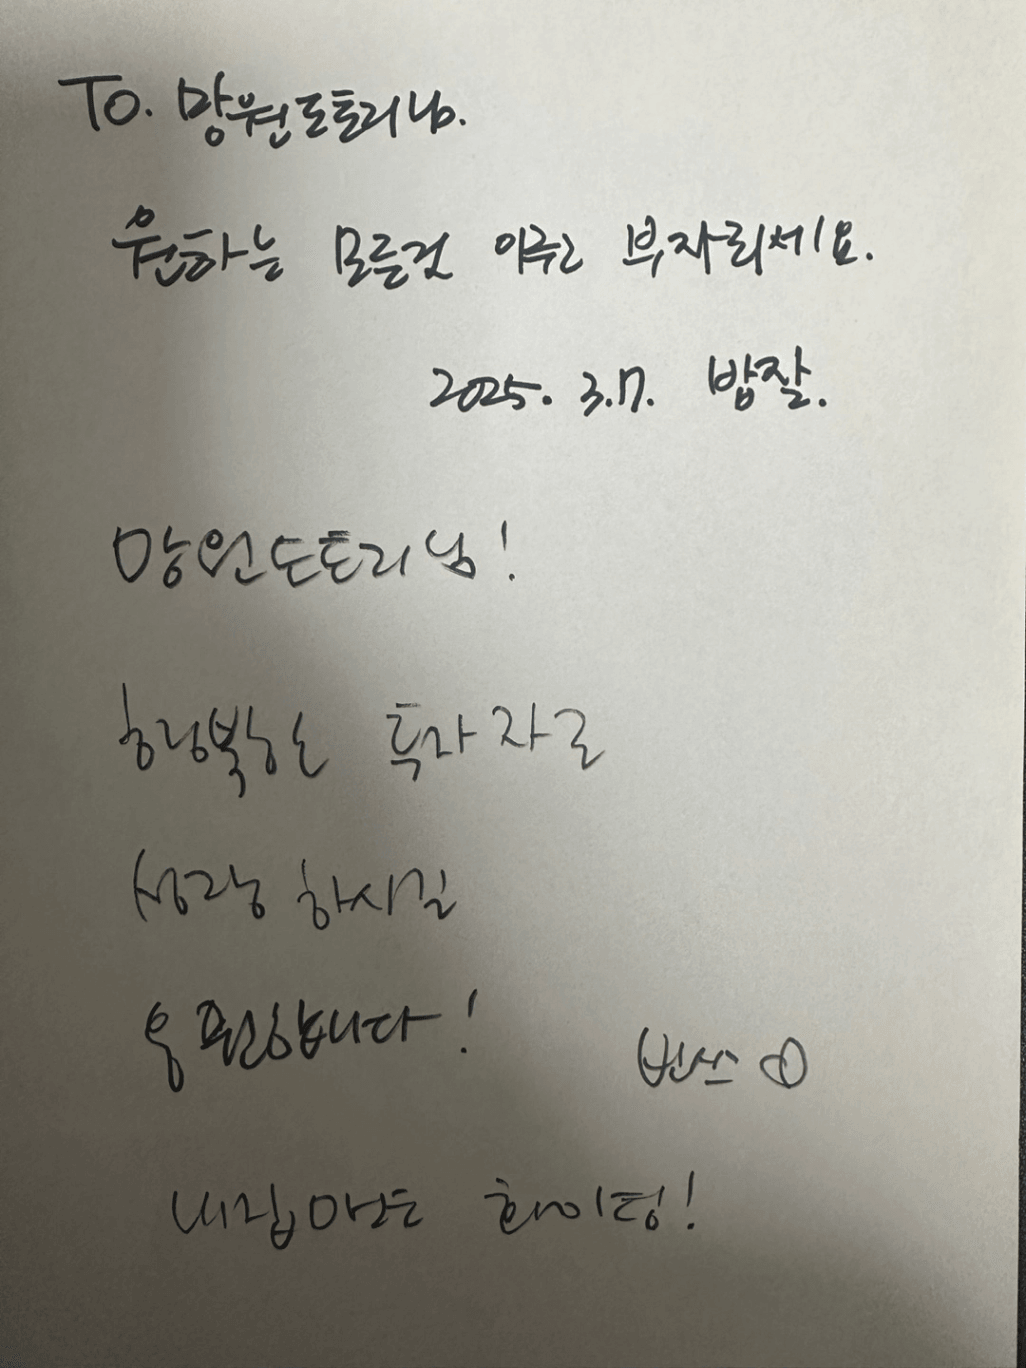 To. 망원도토리님.
원하는 모든것 이루고 부자되세요.
2025. 3.7. 밥잘.
망원도토리님!
행복한 투자자로
성장하시길
응원합니다!
빈쓰
내집마련도 화이팅!